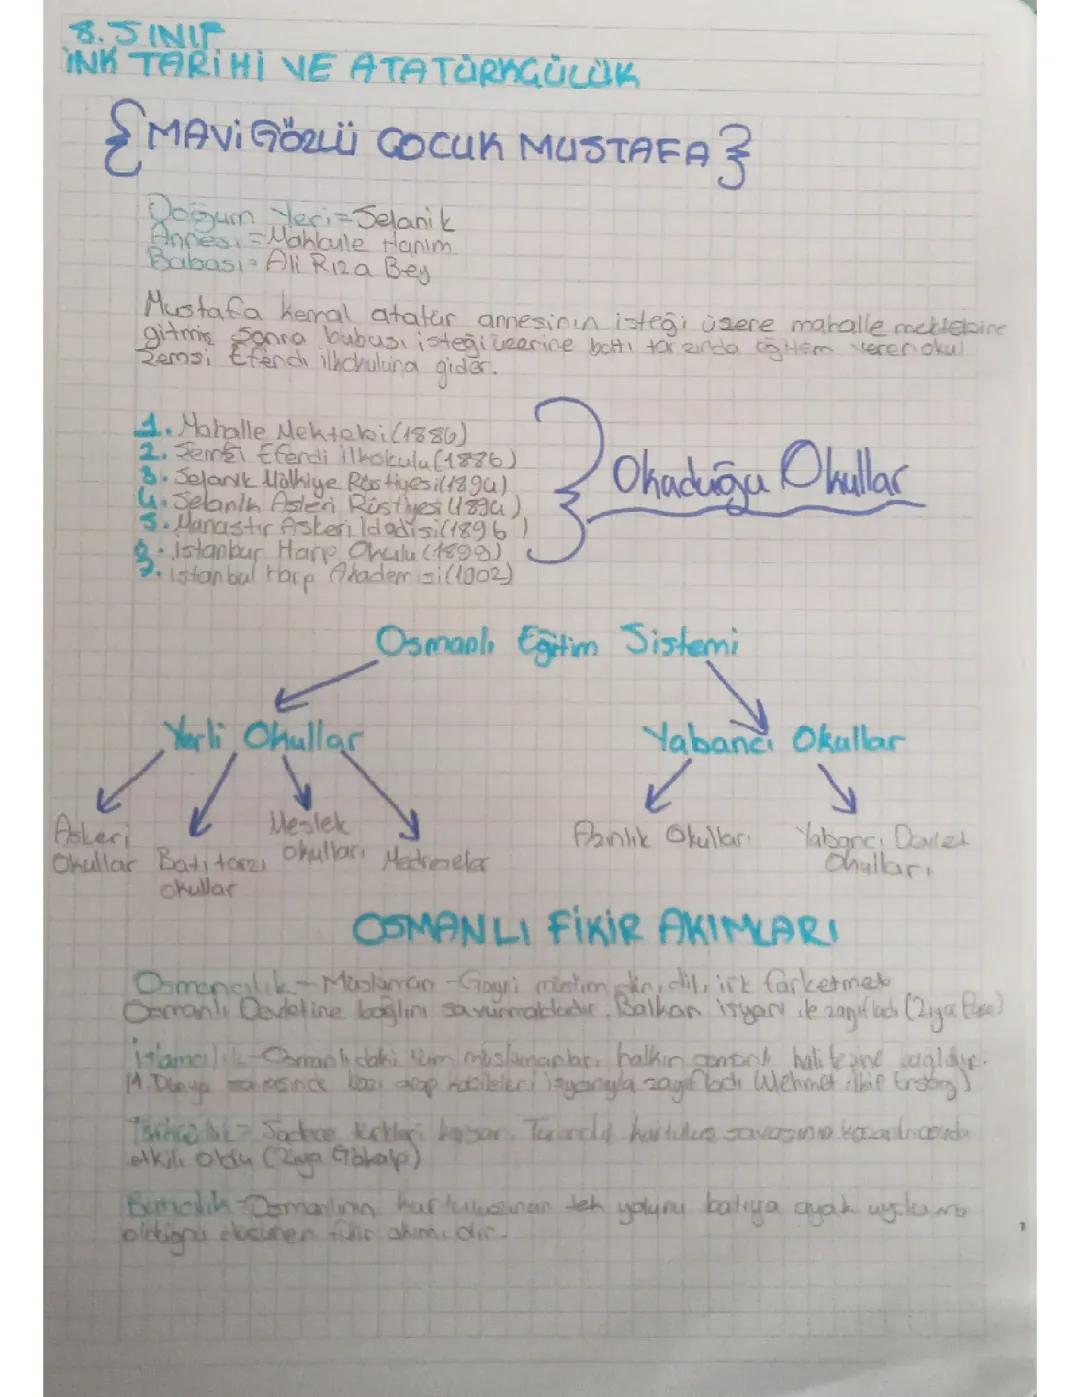 8. SINIF
İNK TARİHİ VE ATATÜRKÇÜLÜK
{MAVİ GÖZLÜ ÇOCUK MUSTAFA}
Doğum Yeri=Selanik
Annesi=Makbule Hanım
Babası=Ali Rıza Bey
Mustafa kemal atatür annesinin isteği üzere mahalle mektebine
gitmiş sonra bubası isteği üzerine batı tarzında eğitem veren okul
Şemsi Efendi ilkokuluna gider.
1. Mahalle Mektebi (1886)
2. Şemsi Efendi İlkokulu (1886)
3. Selanik Mülkiye Rüştiyesi (1894)
4. Selanik Asleri Rüştiyesi (1894)
5. Manastır Askeri İdadisi (1896)
6. İstanbur Harp Okulu (1899)
7. istanbul Harp Akademisi (1902)
Okaduğu Okullar
Osmanlı Eğitim Sistemi
Yerli Okullar
Yabancı Okullar
Askeri Okullar
Batı tarzı okullar
Meslek okulları
Medreseler
Azınlık Okulları
Yabancı Devlet Okulları
OSMANLI FİKİR AKIMLARI
Osmancılık - Müslüman - Gayri müslim din, dil, ırk farketmek
Osmanlı Devletine bağlını savunmaktadır. Balkan isyanı ile zayıfladı (Ziya Paşa)
İslamcılık - Osmanlıdaki tüm müslümanlar, halkın osmanlı
Dünya bazı arap kabileleri isyanıyla zayıfladı
Türkçülük = Sadece türkleri kapsar. kurtuluş savaşının
etkili oldu (Ziya Gökalp)
Batıcılık - Osmanlının kurtuluşunun tek yolunu batıya ayak uydurma
olduğnu düşünen fikir akımıdır.